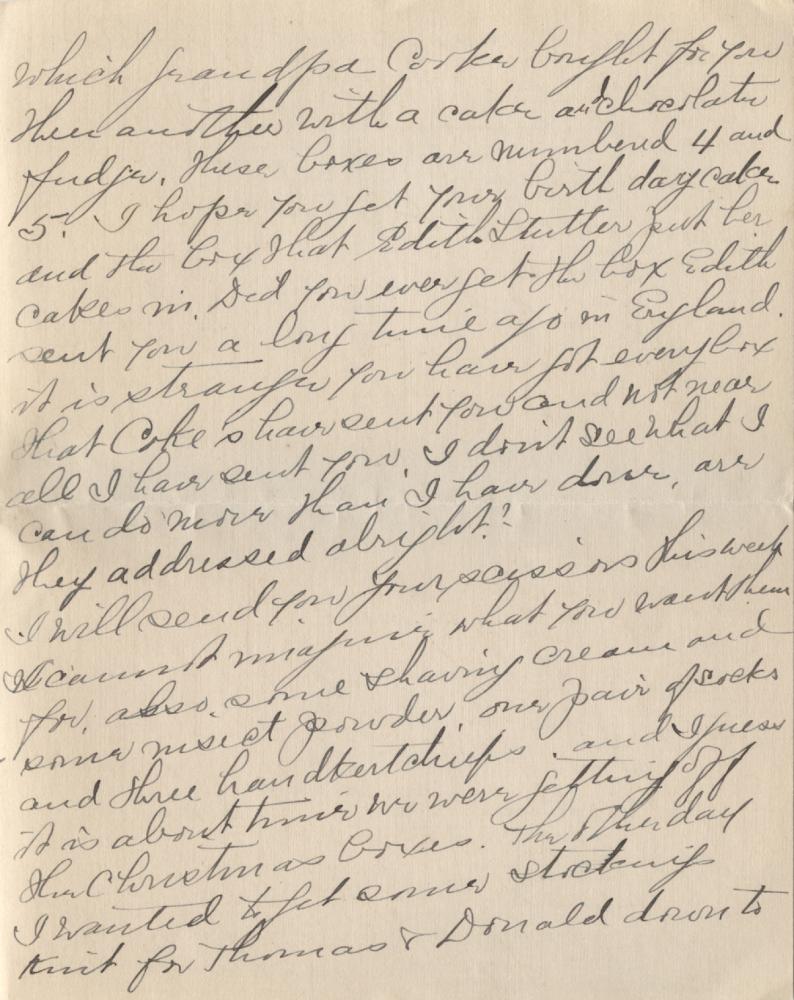 which grandpa Cooke bought for you
then another with a cake and chocolate
fudge. these boxes are numbered 4 and
5. I hope you get your birth day cake
and the box that Edith Stutter put her
cakes in. Did you ever get the box Edith
sent you a long time ago in England.
it is strange you have got every box
that Coke's have sent you and not near
all I have sent you. I don't see what I
can do more than I have done, are
they addressed alright?
I will send you your scissors this week
I cannot imagine what you want them
for, also some shaving cream and
some insect powder, one pair of socks
and three handkertchiefs. and I guess
it is about time we were getting off
the Christmas boxes. The other day
I wanted to get some stockings
knit for Thomas & Donald down to